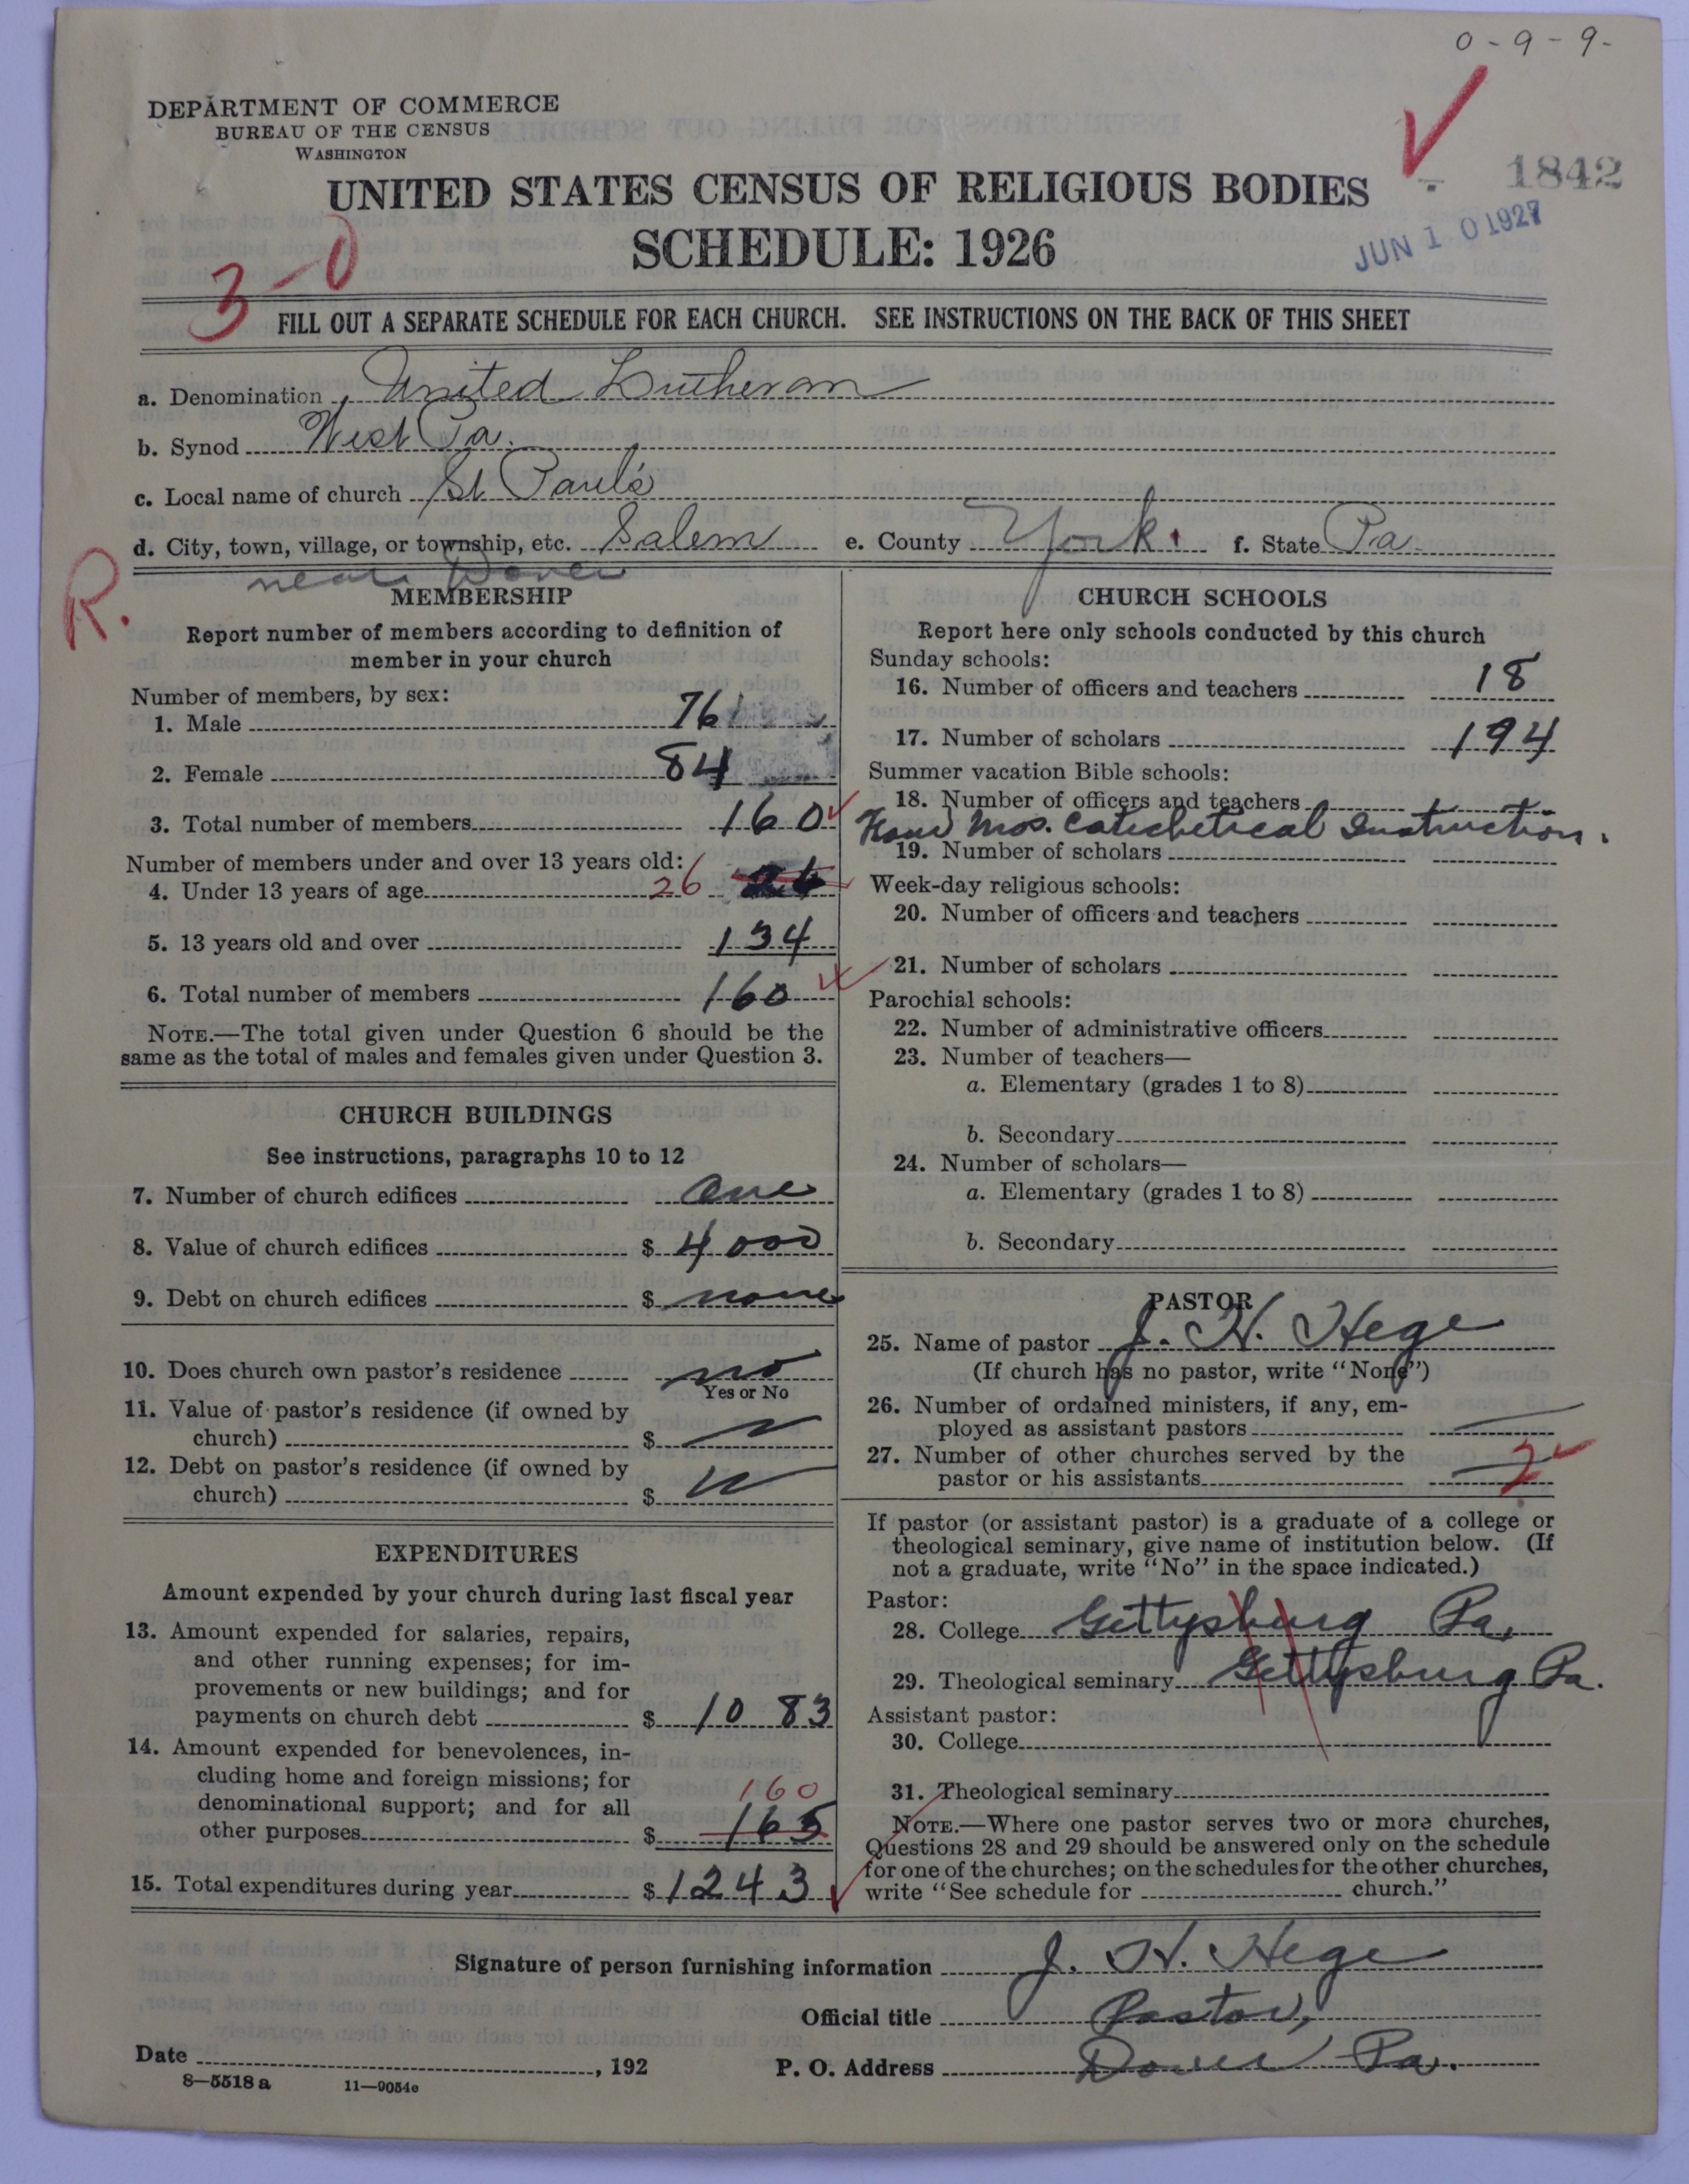 0-9-9-
DEPARTMENT OF COMMERCE
BUREAU OF THE CENSUS
WASHINGTON
1842
UNITED STATES CENSUS OF RELIGIOUS BODIES
SCHEDULE: 1926
JUN 10 1927
3-0
FILL OUT A SEPARATE SCHEDULE FOR EACH CHURCH. SEE INSTRUCTIONS ON THE BACK OF THIS SHEET
a. Denomination United Lutheran
b. Synod West Pa.
c. Local name of church St Paul's
d. City, town, village, or township, etc. Salem e. County York. f. State Pa.
near Dover
R.
MEMBERSHIP
Report number of members according to definition of
member in your church
Number of members, by sex:
1. Male 76
2. Female 84
3. Total number of members 160
Number of members under and over 13 years old:
4. Under 13 years of age 26 26
5. 13 years old and over 134
6. Total number of members 160
NOTE.—The total given under Question 6 should be the
same as the total of males and females given under Question 3.
CHURCH BUILDINGS
See instructions, paragraphs 10 to 12
7. Number of church edifices One
8. Value of church edifices $ 4000
9. Debt on church edifices $ none
10. Does church own pastor's residence no
Yes or No
11. Value of pastor's residence (if owned by
church) $
12. Debt on pastor's residence (if owned by
church) $
EXPENDITURES
Amount expended by your church during last fiscal year
13. Amount expended for salaries, repairs,
and other running expenses; for im-
provements or new buildings; and for
payments on church debt $ 1083
14. Amount expended for benevolences, in-
cluding home and foreign missions; for
denominational support; and for all
160
other purposes $ 165
15. Total expenditures during year $ 1243
CHURCH SCHOOLS
Report here only schools conducted by this church
Sunday schools:
16. Number of officers and teachers 18
17. Number of scholars 194
Summer vacation Bible schools:
18. Number of officers and teachers
Mos. Catechetical Instruction.
19. Number of scholars
Week-day religious schools:
20. Number of officers and teachers
21. Number of scholars
Parochial schools:
22. Number of administrative officers
23. Number of teachers—
a. Elementary (grades 1 to 8)
b. Secondary
24. Number of scholars—
a. Elementary (grades 1 to 8)
b. Secondary
PASTOR
25. Name of pastor J. H. Hege
(If church has no pastor, write "None")
26. Number of ordained ministers, if any, em-
ployed as assistant pastors
27. Number of other churches served by the
pastor or his assistants 2
If pastor (or assistant pastor) is a graduate of a college or
theological seminary, give name of institution below. (If
not a graduate, write "No" in the space indicated.)
Pastor:
28. College Gettysburg Pa.
29. Theological seminary Gettysburg Pa.
Assistant pastor:
30. College
31. Theological seminary
NOTE.—Where one pastor serves two or more churches,
Questions 28 and 29 should be answered only on the schedule
for one of the churches; on the schedules for the other churches,
write "See schedule for church."
Signature of person furnishing information J. H. Hege
Official title Pastor,
Date , 192 P. O. Address Dover Pa.
8—5518 a 11—9054e